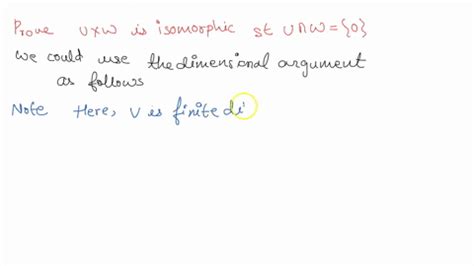 Prove U×W is isomorphic st U∩W={0}
We could use the dimensional argument
as follows
Note Here, V is finite di